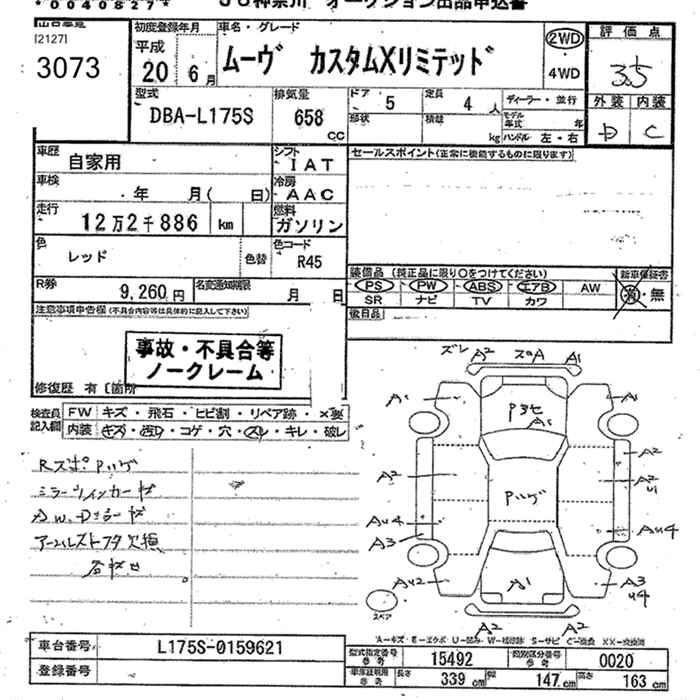 *0040827*
JU神奈川 オークション出品申込書
[2127]
3073
初度登録年月
平成
20 6月
車名・グレード
ムーヴ カスタムXリミテッド
2WD
4WD
評価点
3.5
型式
DBA-L175S
排気量
658
cc
ドア
5
定員
4 人
形状
積載
kg
ディーラー・並行
モデル年式 年
ハンドル 左・右
外装 内装
D C
車歴
自家用
シフト
IAT
セールスポイント(正常に機能するものに限ります)
車検
年 月( 日)
冷房
AAC
走行
12万2千886 km
燃料
ガソリン
色
レッド
色替
色コード
R45
装備品(純正品に限り○をつけてください)
新車保証書
PS PW ABS エアB AW
有・無
SR ナビ TV カワ
R券
9,260円
名変通知期限
月 日
後日品
注意事項申告欄(不具合内容等は具体的に記入して下さい)
事故・不具合等
ノークレーム
修復歴 有 [箇所
検査員
記入欄
FW キズ・飛石・ヒビ割・リペア跡・×要
内装 キズ・コゲ・穴・スレ・キレ・破レ
ズレ A2 A1
A1 A1
A1
A2 A2
A2
U1
AU4 AU4
A3
AU2 A1 A3
U4
スペア
A2 A2
ミラーウィンカーキズ
車台番号
L175S-0159621
登録番号
型式指定番号
参考
15492
類別区分番号
参考
0020
車庫証明用
参考
長さ 339 cm 幅 147 cm 高さ 163 cm